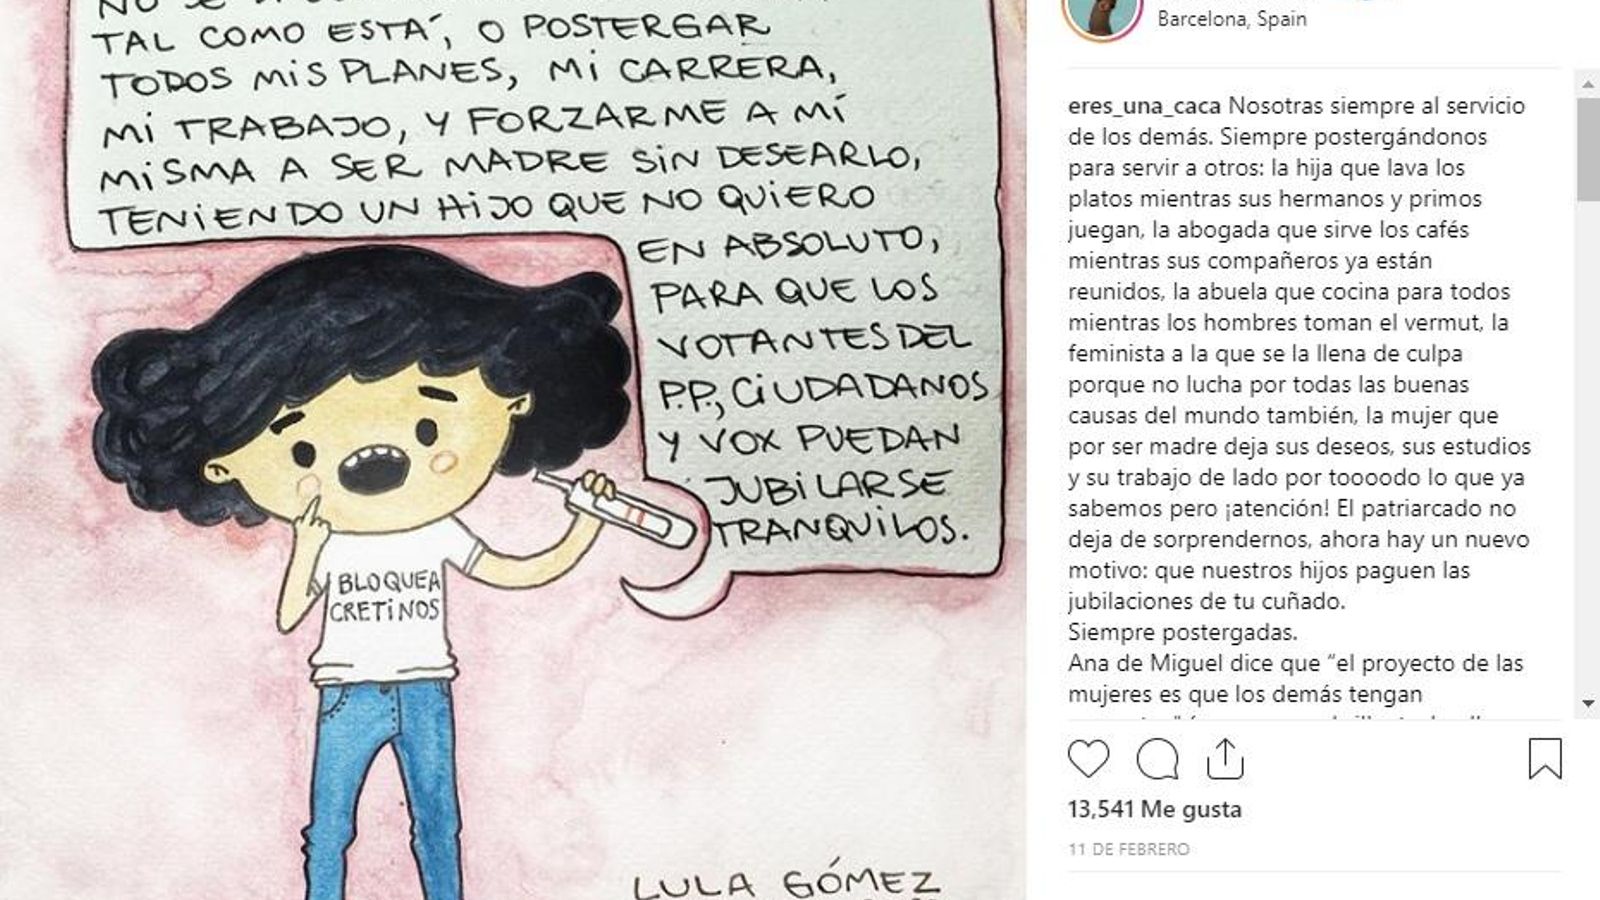 TAL COMO ESTÁ, O POSTERGAR
TODOS MIS PLANES, MI CARRERA,
MI TRABAJO, Y FORZARME A MÍ
MISMA A SER MADRE SIN DESEARLO,
TENIENDO UN HIJO QUE NO QUIERO
EN ABSOLUTO,
PARA QUE LOS
VOTANTES DEL
P.P., CIUDADANOS
Y VOX PUEDAN
JUBILARSE
TRANQUILOS.
BLOQUEA
CRETINOS
LULA GÓMEZ
Barcelona, Spain
eres_una_caca Nosotras siempre al servicio
de los demás. Siempre postergándonos
para servir a otros: la hija que lava los
platos mientras sus hermanos y primos
juegan, la abogada que sirve los cafés
mientras sus compañeros ya están
reunidos, la abuela que cocina para todos
mientras los hombres toman el vermut, la
feminista a la que se la llena de culpa
porque no lucha por todas las buenas
causas del mundo también, la mujer que
por ser madre deja sus deseos, sus estudios
y su trabajo de lado por toooodo lo que ya
sabemos pero ¡atención! El patriarcado no
deja de sorprendernos, ahora hay un nuevo
motivo: que nuestros hijos paguen las
jubilaciones de tu cuñado.
Siempre postergadas.
Ana de Miguel dice que “el proyecto de las
mujeres es que los demás tengan
13,541 Me gusta
11 DE FEBRERO